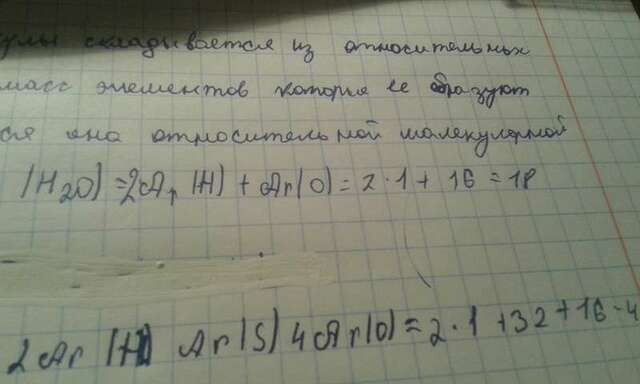 улы складывается из относительных
масс элементов которые ее образуют
ся она относительной молекулярной
(H2O) = 2Ar (H) + Ar(O) = 2·1 + 16 = 18
2Ar (H) Ar(S) 4Ar(O) = 2·1 + 32 + 16·4